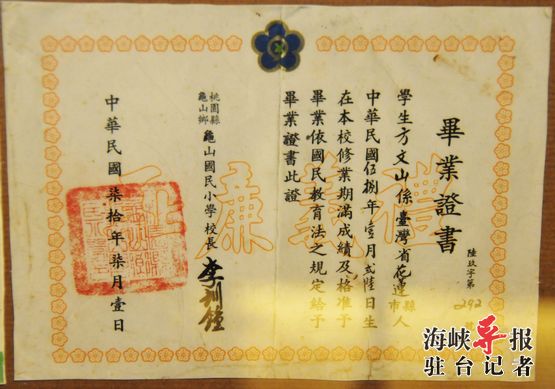 畢業證書
陸玖字第292
學生方文山係臺灣省花蓮縣市人
中華民國伍捌年壹月貳陸日生
在本校修業期滿成績及格准予
畢業依國民教育法之規定給予
畢業證書此證
桃園縣
龜山鄉
龜山國民小學校長
中華民國柒拾年柒月壹日
禮義廉
海峡导报
驻台记者